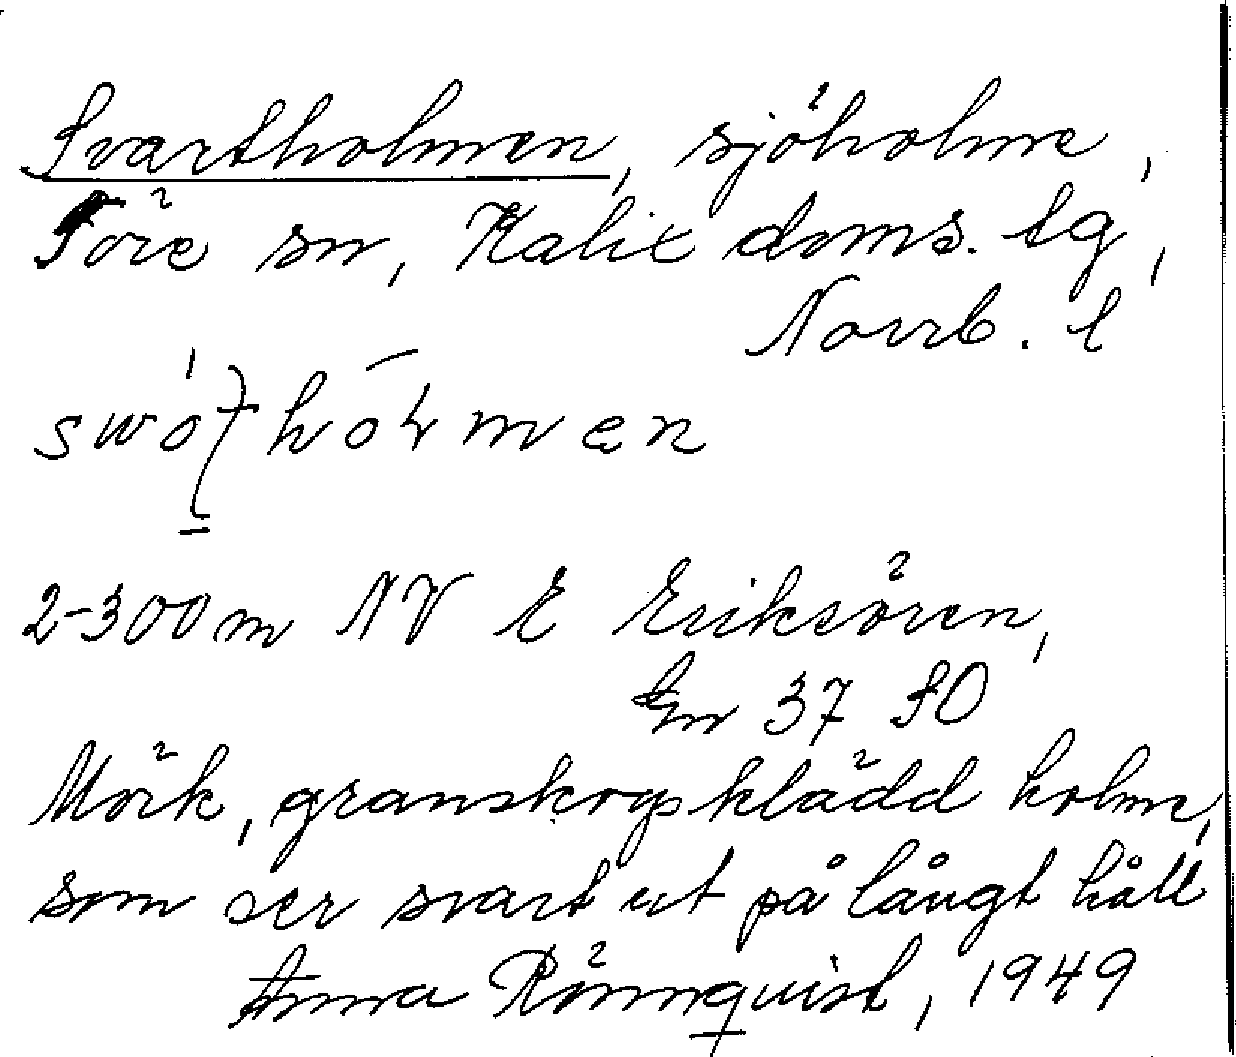 Svartholmen, sjöholme,
Töre sn, Kalix doms. tg,
Norrb. l
2-300m NV E Eriksören,
En 37 SO
Mörk, granskogsklädd holme,
som ser svart ut på långt håll
Anna Rönnquist, 1949